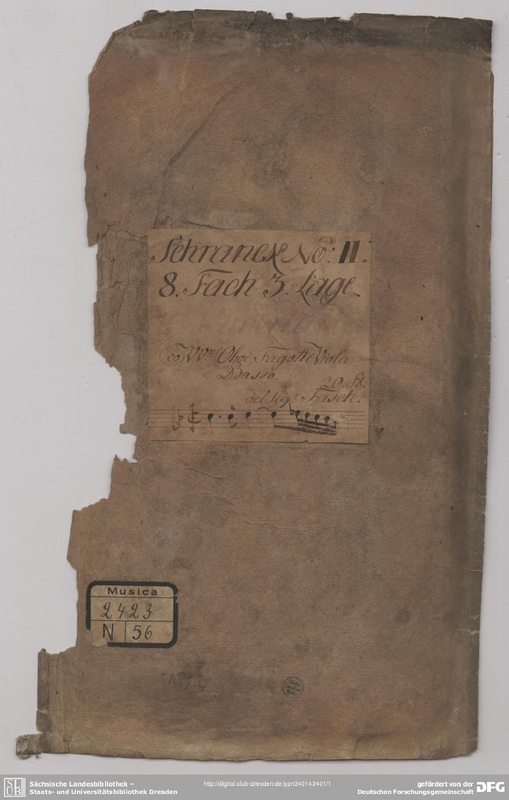 Schranck No: II.
8. Fach 3. Lage.
co VV.ni Oboi Fagotti Viola
e Basso.
20. St.
del Sigr Fasch.
Musica
2423
N 56
Sächsische Landesbibliothek –
Staats- und Universitätsbibliothek Dresden
http://digital.slub-dresden.de/ppn340143401/1
gefördert von der
Deutschen Forschungsgemeinschaft
DFG